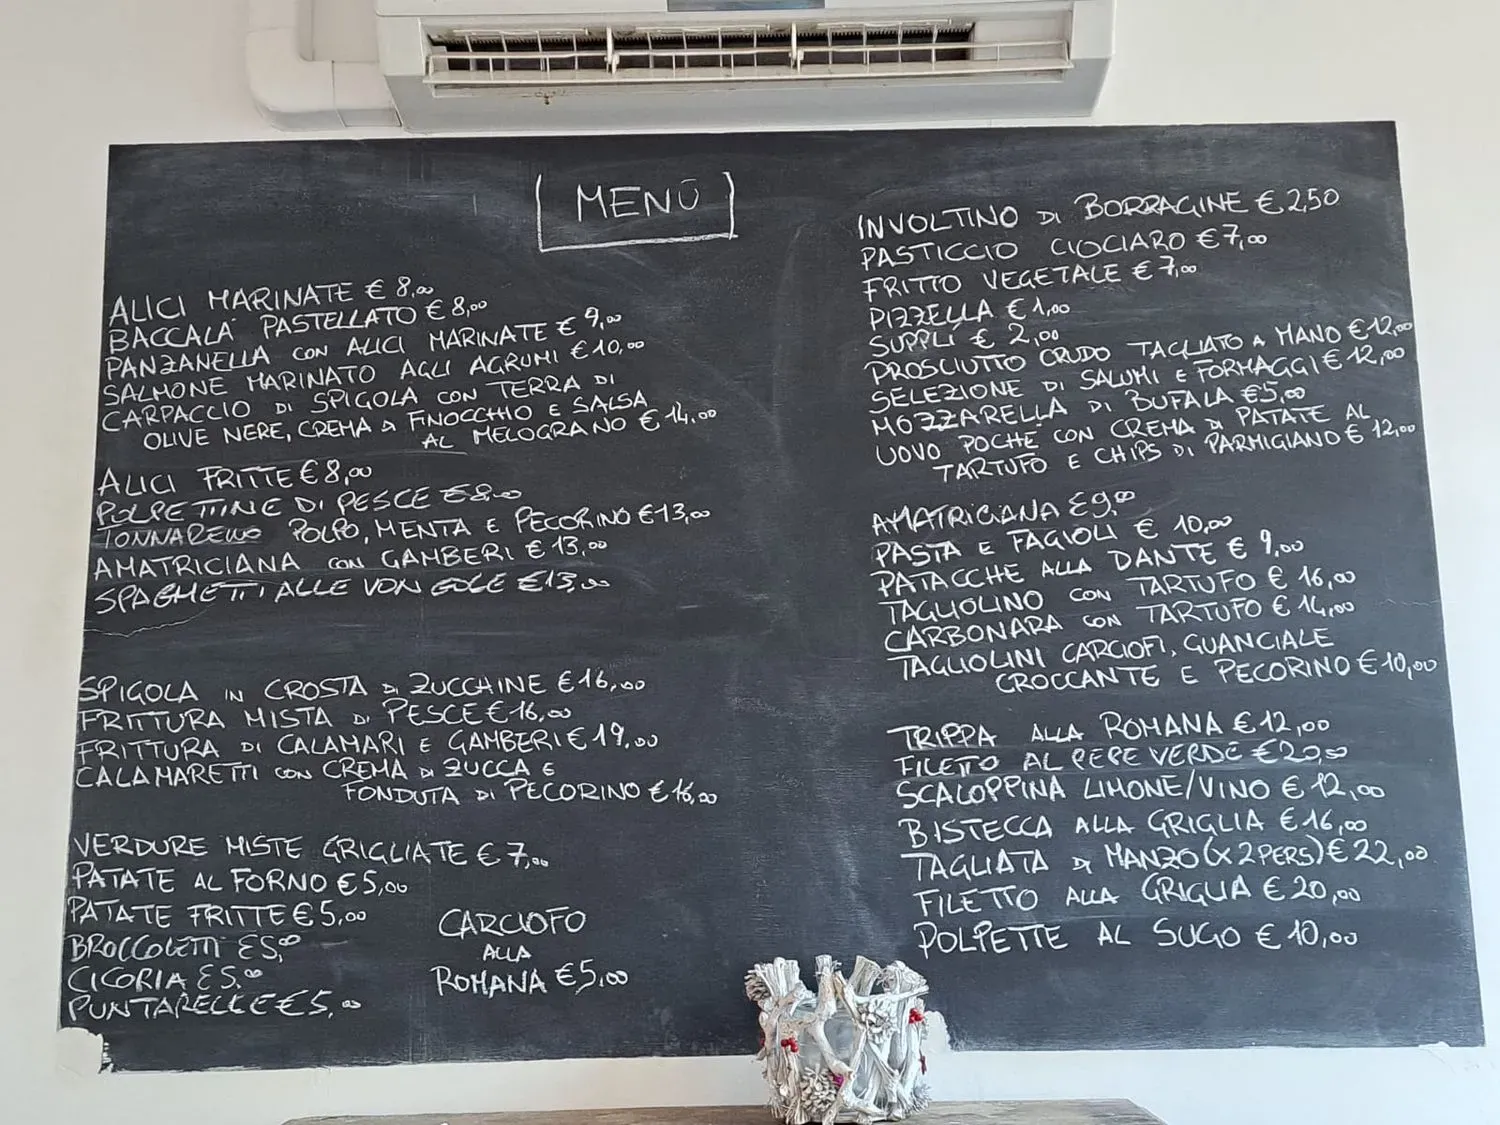 MENÙ
ALICI MARINATE € 8,00
BACCALÀ PASTELLATO € 8,00
PANZANELLA CON ALICI MARINATE € 9,00
SALMONE MARINATO AGLI AGRUMI € 10,00
CARPACCIO DI SPIGOLA CON TERRA DI
OLIVE NERE, CREMA DI FINOCCHIO E SALSA
AL MELOGRANO € 14,00
ALICI FRITTE € 8,00
POLPETTINE DI PESCE € 8,00
TONNARELLO POLPO, MENTA E PECORINO € 13,00
AMATRICIANA CON GAMBERI € 13,00
SPAGHETTI ALLE VONGOLE € 13,00
SPIGOLA IN CROSTA DI ZUCCHINE € 16,00
FRITTURA MISTA DI PESCE € 16,00
FRITTURA DI CALAMARI E GAMBERI € 19.00
CALAMARETTI CON CREMA DI ZUCCA E
FONDUTA DI PECORINO € 16,00
VERDURE MISTE GRIGLIATE € 7,00
PATATE AL FORNO € 5,00
PATATE FRITTE € 5,00
BROCCOLETTI € 5,00
CICORIA € 5,00
PUNTARELLE € 5,00
CARCIOFO
ALLA
ROMANA € 5,00
INVOLTINO DI BORRAGINE € 2,50
PASTICCIO CIOCIARO € 7,00
FRITTO VEGETALE € 7,00
PIZZELLA € 1,00
SUPPLÌ € 2,00
PROSCIUTTO CRUDO TAGLIATO A MANO € 12,00
SELEZIONE DI SALUMI E FORMAGGI € 12,00
MOZZARELLA DI BUFALA € 5,00
UOVO POCHÉ CON CREMA DI PATATE AL
TARTUFO E CHIPS DI PARMIGIANO € 12,00
AMATRICIANA € 9,00
PASTA E FAGIOLI € 10,00
PATACCHE ALLA DANTE € 9,00
TAGLIOLINO CON TARTUFO € 16,00
CARBONARA CON TARTUFO € 14,00
TAGLIOLINI CARCIOFI, GUANCIALE
CROCCANTE E PECORINO € 10,00
TRIPPA ALLA ROMANA € 12,00
FILETTO AL PEPE VERDE € 20,00
SCALOPPINA LIMONE/VINO € 12,00
BISTECCA ALLA GRIGLIA € 16,00
TAGLIATA DI MANZO (X 2 PERS) € 22,00
FILETTO ALLA GRIGLIA € 20,00
POLPETTE AL SUGO € 10,00